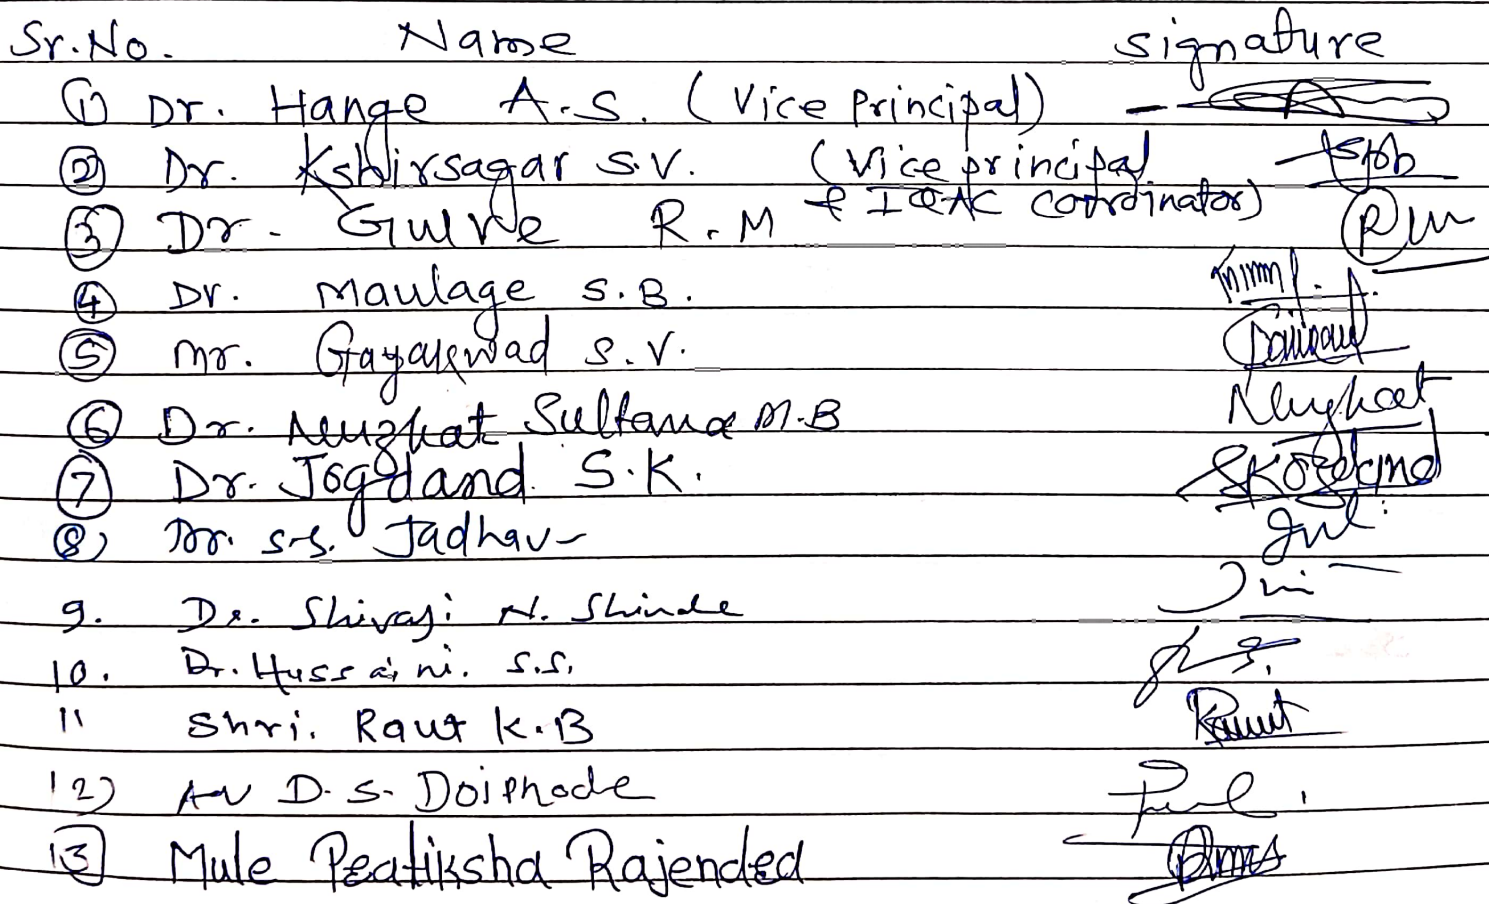 Sr.No. Name signature
① Dr. Hange A.S. (Vice Principal)
② Dr. Kshirsagar S.V. (Vice principal
& IQAC Coordinator)
③ Dr. Gulve R.M
④ Dr. Maulage S.B.
⑤ Mr. Gayakwad S.V.
⑥ Dr. Nuzhat Sultana M.B Nuzhat
⑦ Dr. Jogdand S.K. SKJogdand
⑧ Dr. S.S. Jadhav
9. Dr. Shivaji N. Shinde
10. Dr. Hussaini. S.S.
11 Shri. Raut K.B Raut
12) D.S. Doiphode
13 Mule Pratiksha Rajendra